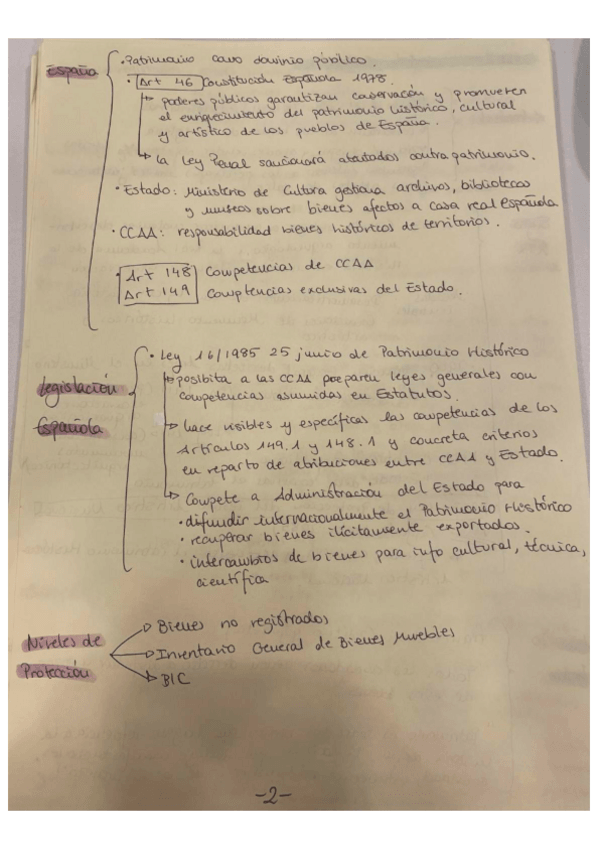 España
· Patrimonio como dominio público.
· Art 46 Constitución Española 1978.
↳ poderes públicos garantizan conservación y promueven
el enriquecimiento del patrimonio histórico, cultural
y artístico de los pueblos de España.
↳ la Ley Penal sancionará atentados contra patrimonio.
· Estado: Ministerio de Cultura gestiona archivos, bibliotecas
y museos sobre bienes afectos a casa real española
· CCAA: responsabilidad bienes históricos de territorios.
· Art 148 Competencias de CCAA
Art 149 Comptencias exclusivas del Estado.
Legislación
Española
· Ley 16/1985 25 junio de Patrimonio Histórico
↳ posibita a las CCAA preparen leyes generales con
competencias asumidas en Estatutos.
↳ hace visibles y específicas las competencias de los
Artículos 149.1 y 148.1 y concreta criterios
en reparto de atribuciones entre CCAA y Estado.
↳ Compete a Administración del Estado para
· difundir internacionalmente el Patrimonio Histórico
· recuperar bienes ilícitamente exportados.
· intercambios de bienes para info cultural, técnica,
científica
Niveles de
Protección
Bienes no registrados
Inventario General de Bienes Muebles
BIC
-2-